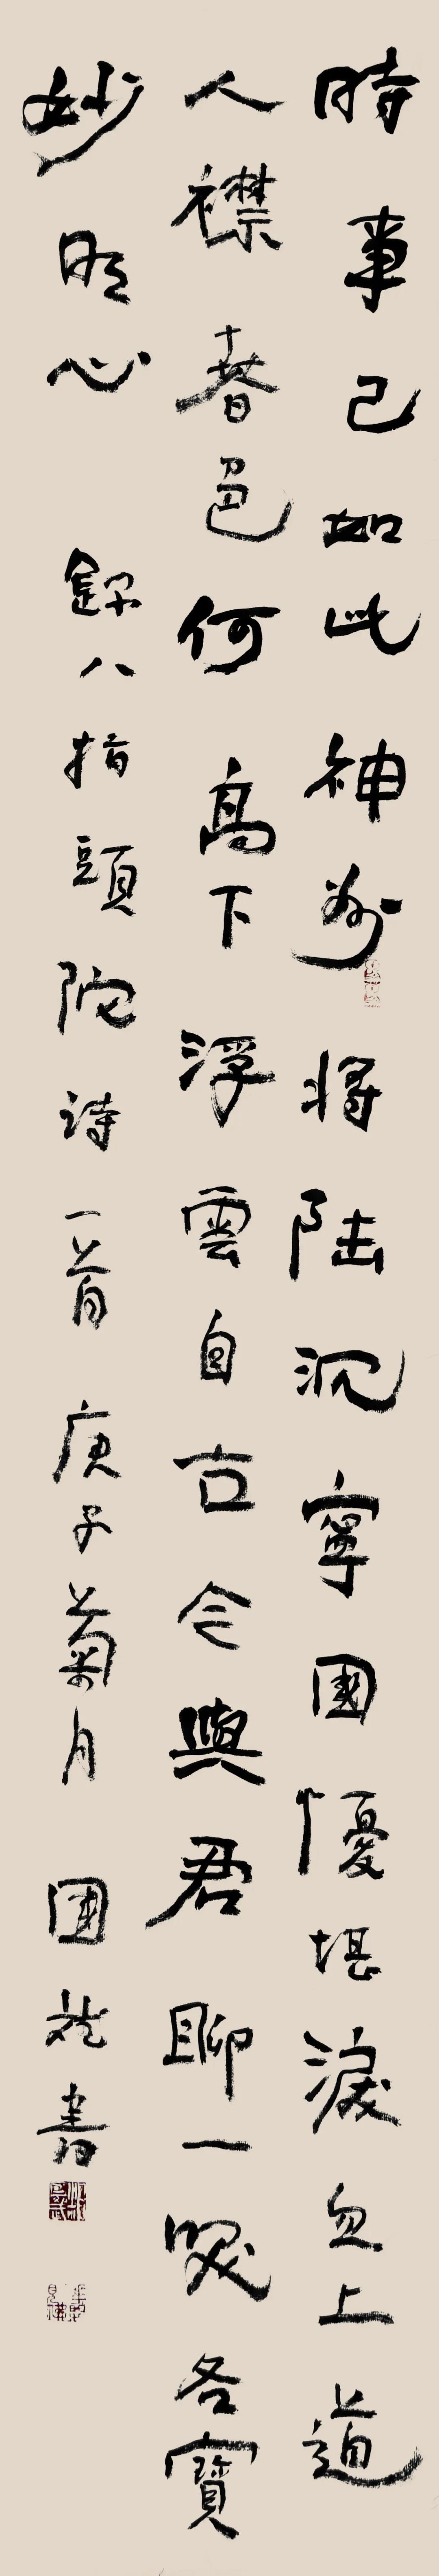 時事已如此神州將陸沉寧國懮堪淚忽上道
人襟春色何高下浮雲自古今與君聊一咲各寶
妙明心 錄八指頭陀詩一首 庚子菊月 國書